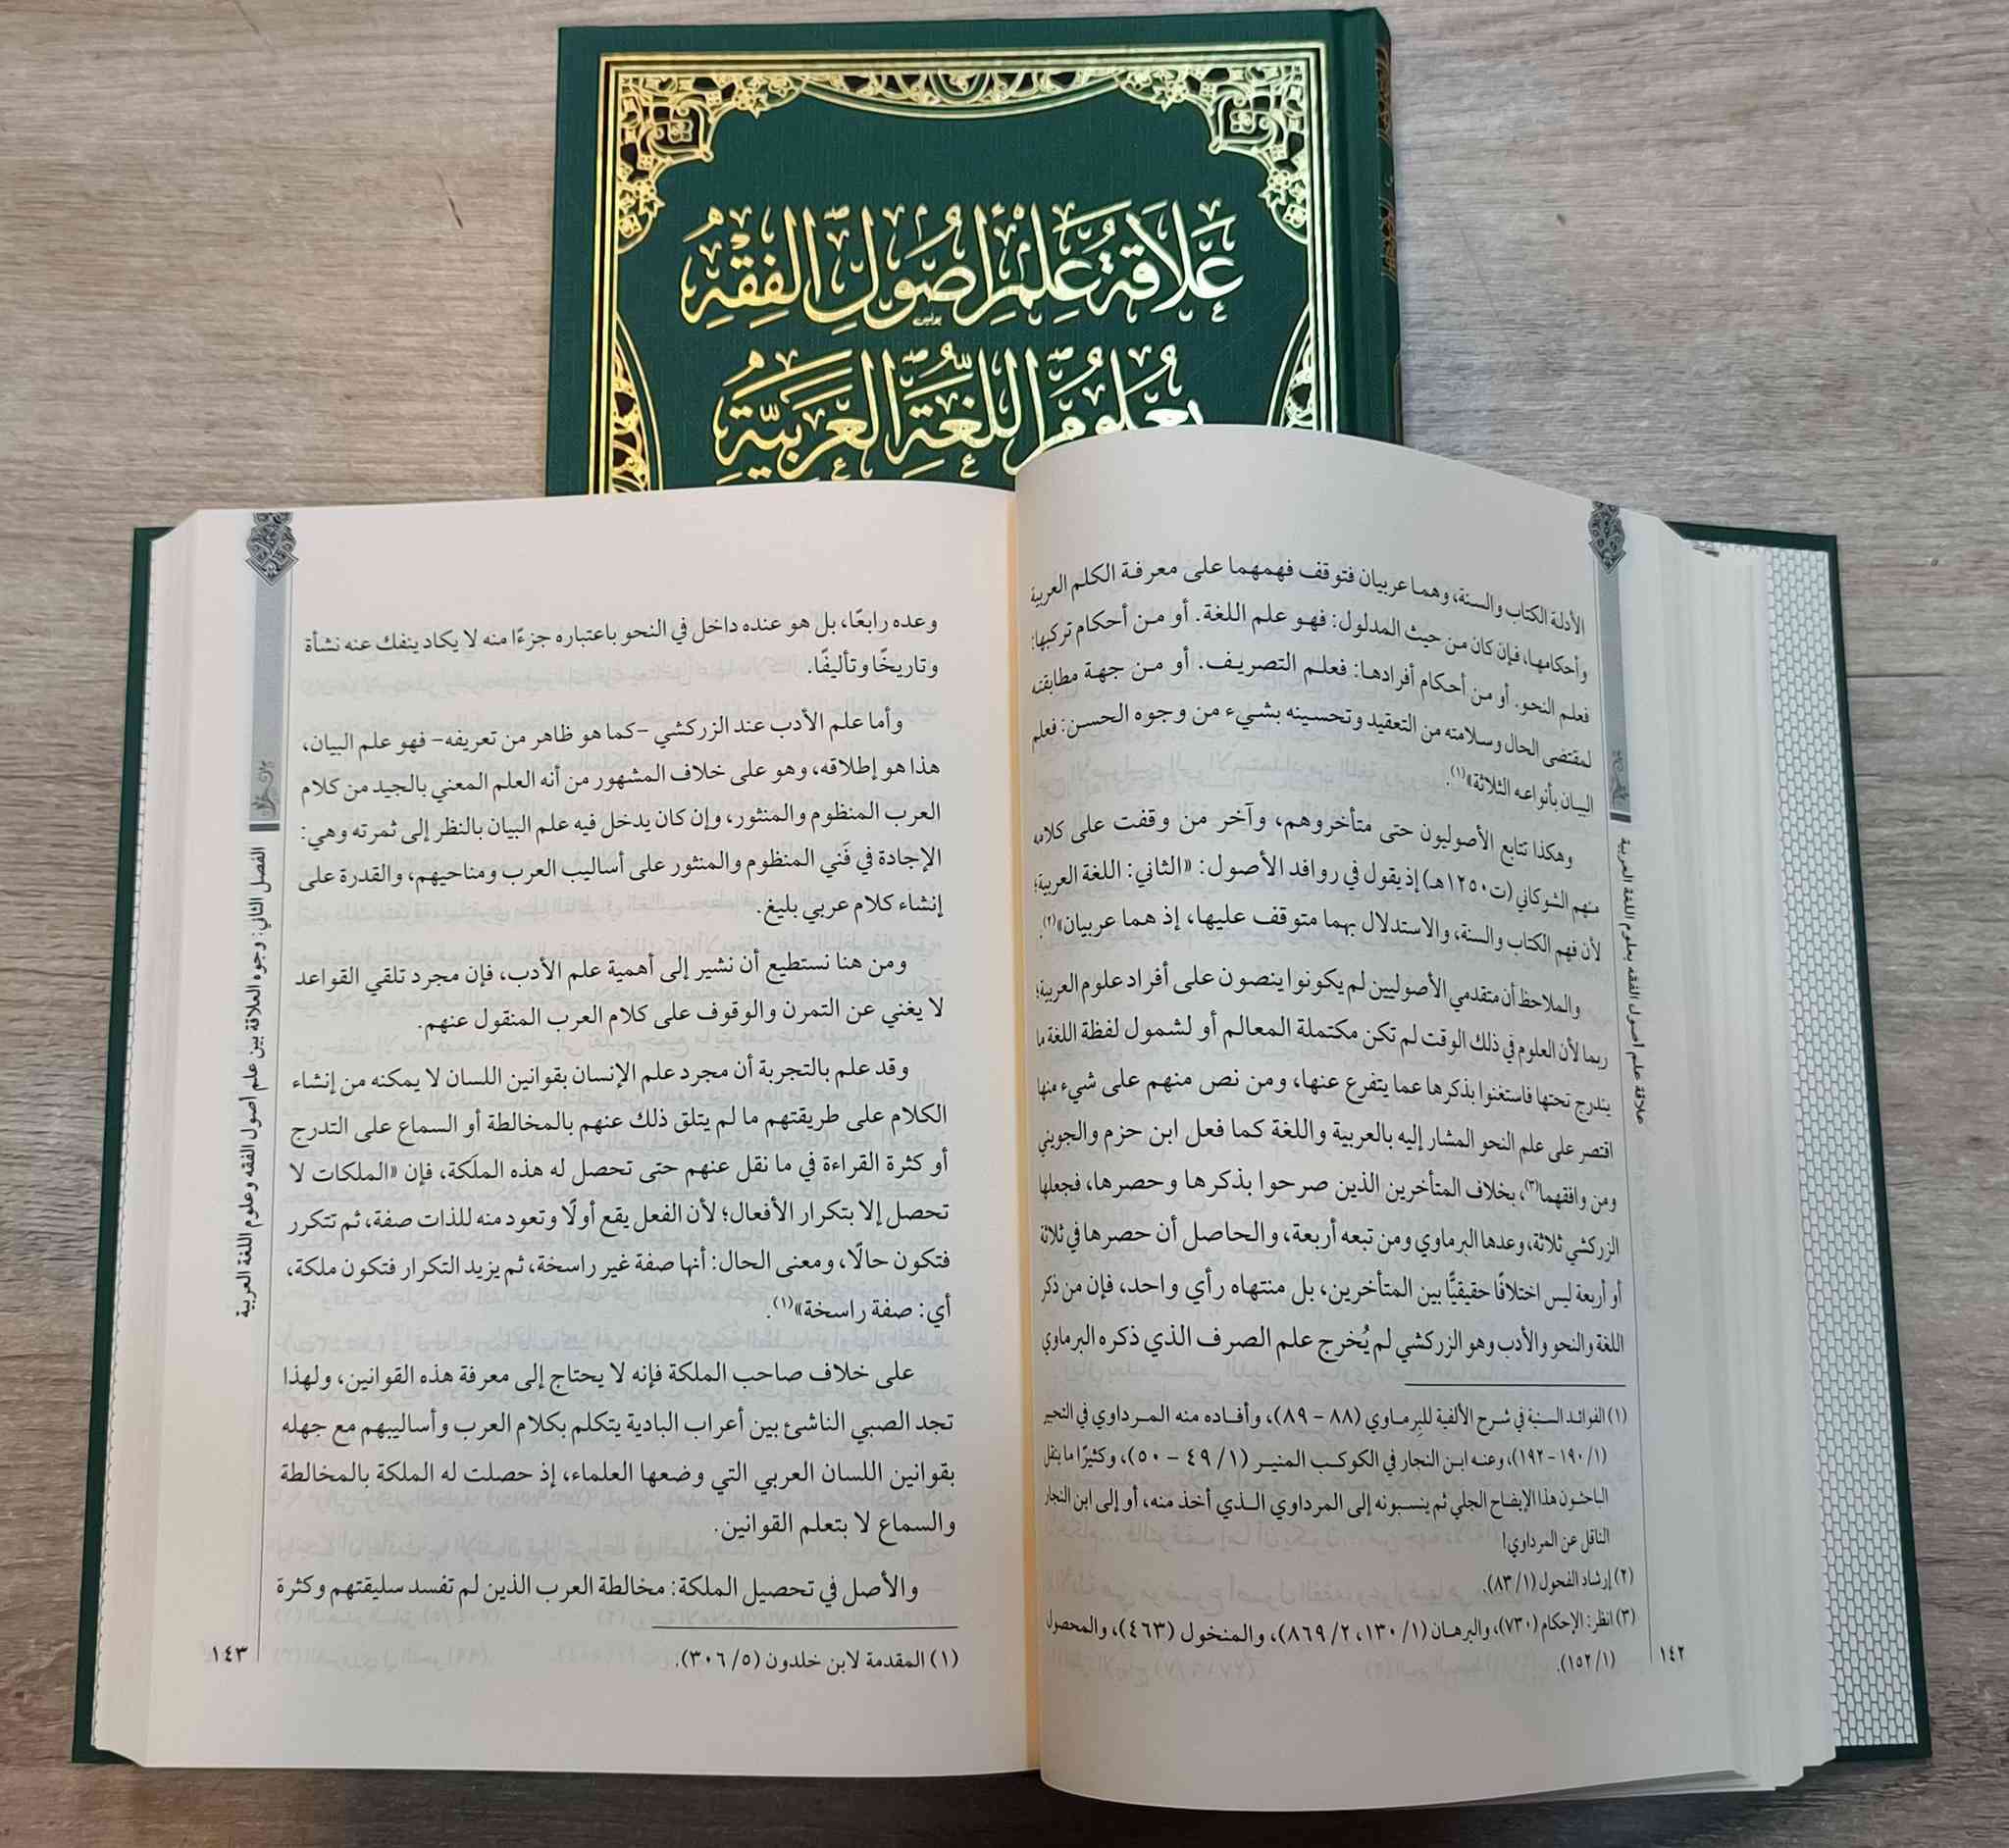 علاقة علم أصول الفقه
بعلوم اللغة العربية
علاقة علم أصول الفقه بعلوم اللغة العربية
الأدلة الكتاب والسنة، وهما عربيان فتوقف فهمهما على معرفة الكلم العربية
وأحكامها، فإن كان من حيث المدلول: فهو علم اللغة. أو من أحكام تركبها:
فعلم النحو. أو من أحكام أفرادها: فعلم التصريف. أو من جهة مطابقته
لمقتضى الحال وسلامته من التعقيد وتحسينه بشيء من وجوه الحسن: فعلم
البيان بأنواعه الثلاثة»(١).
وهكذا تتابع الأصوليون حتى متأخروهم، وآخر من وقفت على كلامه
منهم الشوكاني (ت١٢٥٠هـ) إذ يقول في روافد الأصول: «الثاني: اللغة العربية؛
لأن فهم الكتاب والسنة، والاستدلال بهما متوقف عليها، إذ هما عربيان»(٢).
والملاحظ أن متقدمي الأصوليين لم يكونوا ينصون على أفراد علوم العربية؛
ربما لأن العلوم في ذلك الوقت لم تكن مكتملة المعالم أو لشمول لفظة اللغة ما
يندرج تحتها فاستغنوا بذكرها عما يتفرع عنها، ومن نص منهم على شيء منها
اقتصر على علم النحو المشار إليه بالعربية واللغة كما فعل ابن حزم والجويني
ومن وافقهما(٣)، بخلاف المتأخرين الذين صرحوا بذكرها وحصرها، فجعلها
الزركشي ثلاثة، وعدها البرماوي ومن تبعه أربعة، والحاصل أن حصرها في ثلاثة
أو أربعة ليس اختلافًا حقيقيًّا بين المتأخرين، بل منتهاه رأي واحد، فإن من ذكر
اللغة والنحو والأدب وهو الزركشي لم يُخرج علم الصرف الذي ذكره البرماوي
(١) الفوائد السنية في شرح الألفية للبرماوي (٨٨ - ٨٩)، وأفاده منه المرداوي في التحبير
(١/ ١٩٠-١٩٢)، وعنه ابن النجار في الكوكب المنير (١/ ٤٩ - ٥٠)، وكثيرًا ما ينقل
الباحثون هذا الإيضاح الجلي ثم ينسبونه إلى المرداوي الذي أخذ منه، أو إلى ابن النجار
الناقل عن المرداوي!
(٢) إرشاد الفحول (١/ ٨٣).
(٣) انظر: الإحكام (٧٣٠)، والبرهان (١/ ١٣٠، ٢/ ٨٦٩)، والمنخول (٤٦٣)، والمحصول
(١/ ١٥٢).
١٤٢
الفصل الثاني: وجوه العلاقة بين علم أصول الفقه وعلوم اللغة العربية
وعده رابعًا، بل هو عنده داخل في النحو باعتباره جزءًا منه لا يكاد ينفك عنه نشأة
وتاريخًا وتأليفًا.
وأما علم الأدب عند الزركشي -كما هو ظاهر من تعريفه- فهو علم البيان،
هذا هو إطلاقه، وهو على خلاف المشهور من أنه العلم المعني بالجيد من كلام
العرب المنظوم والمنثور، وإن كان يدخل فيه علم البيان بالنظر إلى ثمرته وهي:
الإجادة في فَني المنظوم والمنثور على أساليب العرب ومناحيهم، والقدرة على
إنشاء كلام عربي بليغ.
ومن هنا نستطيع أن نشير إلى أهمية علم الأدب، فإن مجرد تلقي القواعد
لا يغني عن التمرن والوقوف على كلام العرب المنقول عنهم.
وقد علم بالتجربة أن مجرد علم الإنسان بقوانين اللسان لا يمكنه من إنشاء
الكلام على طريقتهم ما لم يتلق ذلك عنهم بالمخالطة أو السماع على التدرج
أو كثرة القراءة في ما نقل عنهم حتى تحصل له هذه الملَكة، فإن «الملكات لا
تحصل إلا بتكرار الأفعال؛ لأن الفعل يقع أولًا وتعود منه للذات صفة، ثم تتكرر
فتكون حالًا، ومعنى الحال: أنها صفة غير راسخة، ثم يزيد التكرار فتكون ملكة،
أي: صفة راسخة»(١).
على خلاف صاحب الملكة فإنه لا يحتاج إلى معرفة هذه القوانين، ولهذا
تجد الصبي الناشئ بين أعراب البادية يتكلم بكلام العرب وأساليبهم مع جهله
بقوانين اللسان العربي التي وضعها العلماء، إذ حصلت له الملكة بالمخالطة
والسماع لا بتعلم القوانين.
والأصل في تحصيل الملكة: مخالطة العرب الذين لم تفسد سليقتهم وكثرة
(١) المقدمة لابن خلدون (٥/ ٣٠٦).
١٤٣